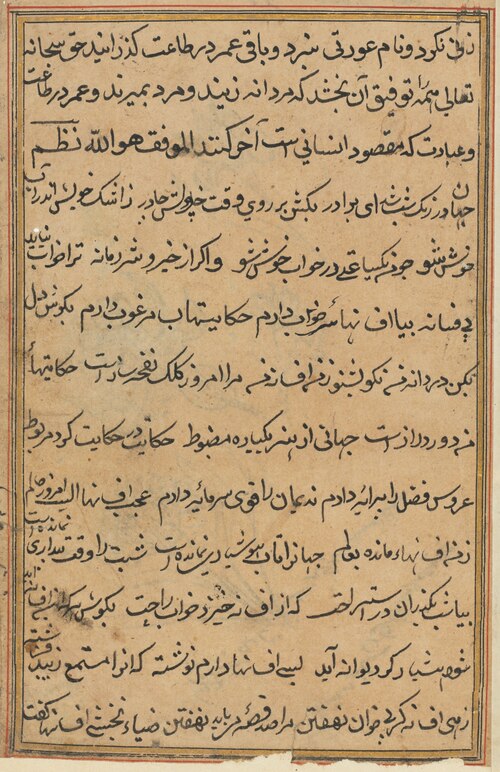 زنی نکرد و نام عورتی نبرد و باقی عمر در طاعت گذرانید حق سبحانه
تعالی همه را توفیق آن بخشد که مردانه زیند و مرد بمیرند و عمر در طاعت
و عبادت که مقصود انسانی است آخر کنند الموفق هو الله نظم
جهان در زیر شب شد ای برادر بکش بر روی وقت خواب چادر ز اشک خویش اندر آب
خوش شو چو نیکبختی در خواب خوش شو و اگر از خیر و شر زمانه ترا خواب نیاید
بی فسانه بیا افسانهاء خواب دارم حکایتهاء مرغوب دارم بگوش دل
نکو بشنو ز من افسانه من مرا امروز کلک نغمه ساز است حکایتهاء
من دور و دراز است جهانی از هنر یکباره مضبوط حکایت در حکایت کرده مربوط
عروس فضل را پیرایه دارم ندیمان را قوی سرمایه دارم عجب افسانها است امروز
ز من افسانهاء مانده بعالم جهان را تاب هوشیاری نمانده است شبت را وقت بیداری نمانده است
بیا شب بگذران در استراحت که از افسانه خیزد خواب راحت بگوش
شود هشیار گر دیوانه آید بسی افسانها دارم نوشته که آنرا مستمع زیبد فرشته
ز من افسانه گر بی خوان نهفتن مرا صد قصه می باید نهفتن ضیاء نخشبی افسانها گفت